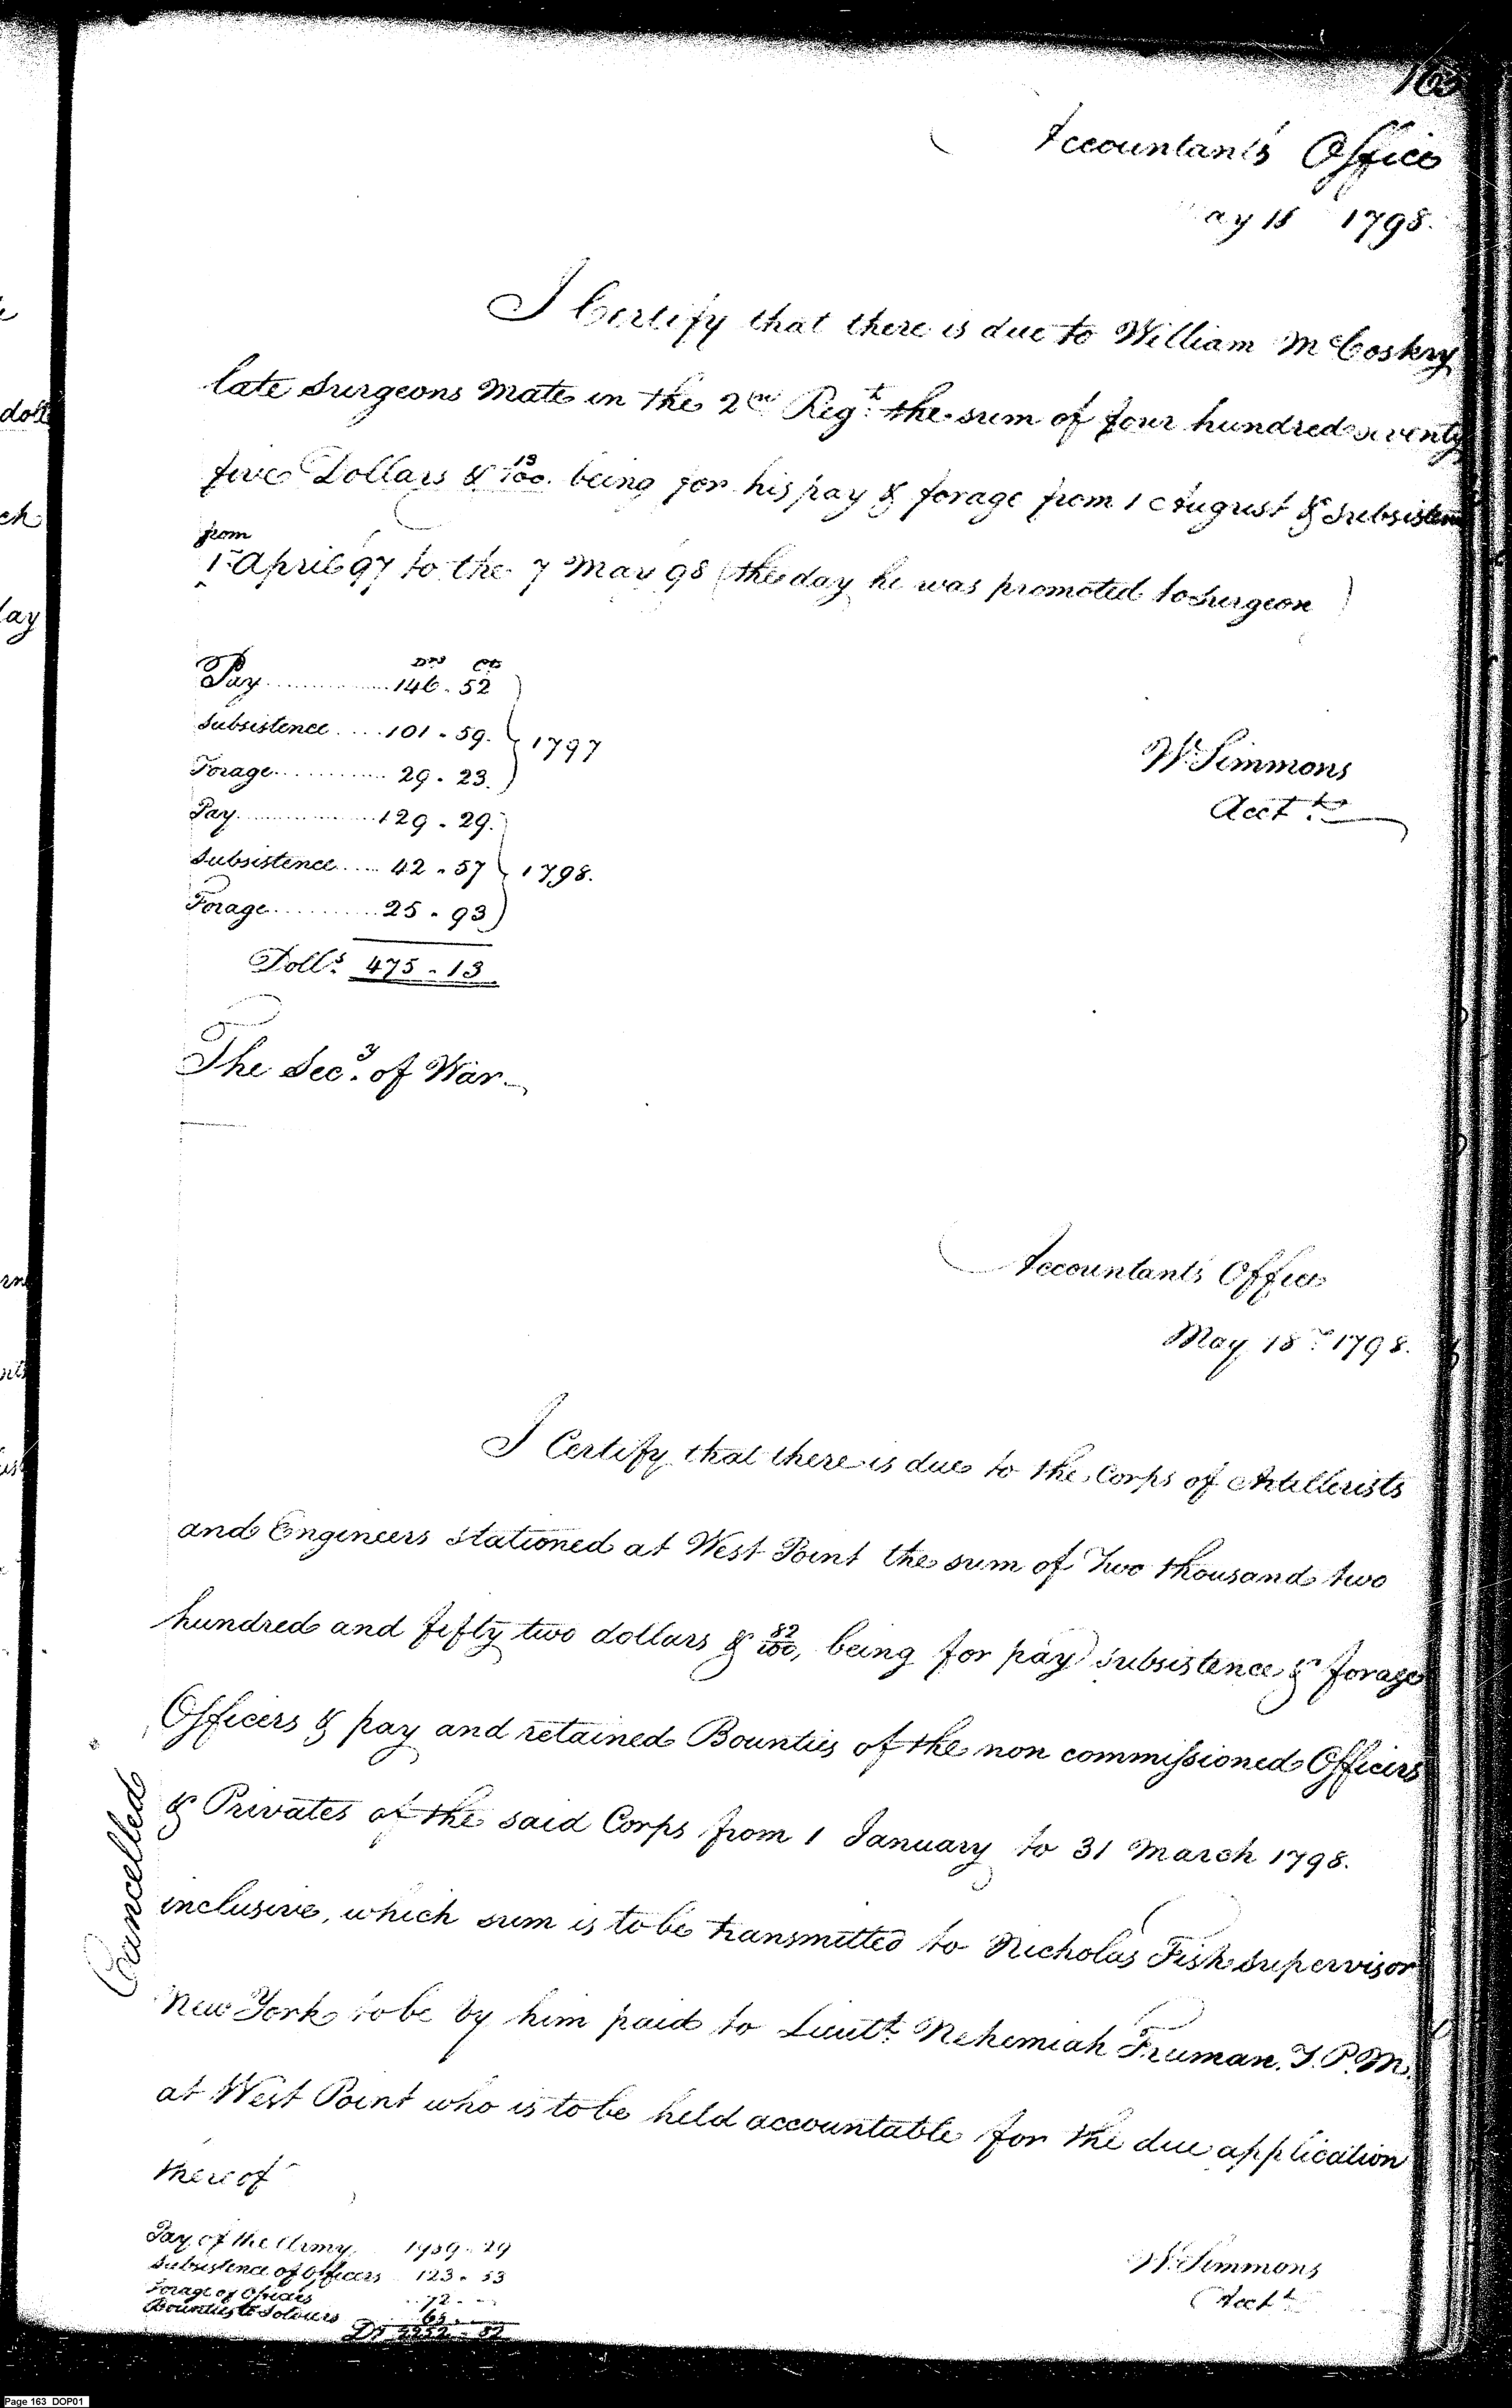 163
Accountants Office
May 15 1798.
I Certify that there is due to William McCoskry
late Surgeons Mate in the 2nd Regt. the sum of four hundred seventy
five Dollars & 13/100. being for his pay & forage from 1 August & Subsistence
from
1 April 97 to the 7 May 98 (the day he was promoted to Surgeon)
Drs Cts
Pay 146. 52
Subsistence 101. 59. 1797
Forage 29. 23.
Pay 129. 29.
Subsistence 42. 57 1798.
Forage 25. 93
Dolls. 475. 13
W Simmons
Acct.
The Secy. of War
Accountants Office
May 18 1798.
I Certify that there is due to the Corps of Artillerists
and Engineers stationed at West Point the sum of Two thousand two
hundred and fifty two dollars & 82/100, being for pay subsistence & forage
Officers & pay and retained Bounties of the non commissioned Officers
& Privates of the said Corps from 1 January to 31 March 1798.
inclusive, which sum is to be transmitted to Nicholas Fish supervisor
New York to be by him paid to Lieutt. Nehemiah Fruman. T. P. M.
at West Point who is to be held accountable for the due application
thereof
Cancelled
Pay of the Army 29
Subsistence of Officers 123. 53
Forage of Officers 72
Bounties to Soldiers
Ds 2252. 82
W. Simmons
Acct
doll
ch
lay
Page 163 DOP01